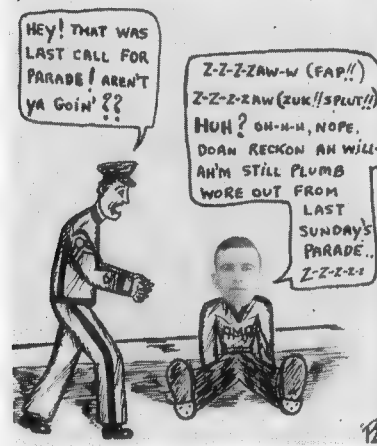 HEY! THAT WAS
LAST CALL FOR
PARADE! AREN'T
YA GOIN'??
Z-Z-Z-ZAW-W (FAP!!)
Z-Z-Z-ZAW (ZUK!!SPLUT!!)
HUH? OH-H-H, NOPE,
DOAN RECKON AH WILL-
AH'M STILL PLUMB
WORE OUT FROM
LAST
SUNDAY'S
PARADE..
Z-Z-Z-Z-Z